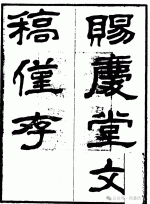 賜慶堂文
稿僅存